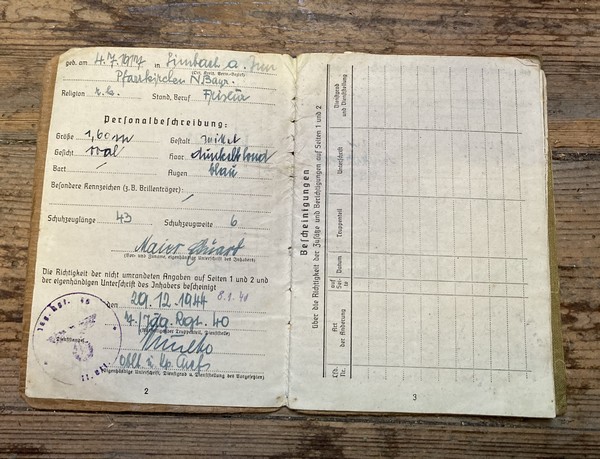 geb. am 4.7.1917 in Simbach a. Inn
Pfarrkirchen N.Bayr.
Religion r.k. Stand, Beruf
Personalbeschreibung:
Größe 1,60 m Gestalt mittel
Gesicht oval Haar dunkelblond
Bart / Augen blau
Besondere Kennzeichen (z.B. Brillenträger):
/
Schuhzeuglänge 43 Schuhzeugweite 6
Maier
(Vor- und Zuname, eigenhändige Unterschrift des Inhabers)
Die Richtigkeit der nicht umrandeten Angaben auf Seiten 1 und 2 und
der eigenhändigen Unterschrift des Inhabers bescheinigt
den 29.12.1944
Jäg. Rgt. 40
(Dienststempel)
(Eigenhändige Unterschrift, Dienstgrad u. Dienststellung des Vorgesetzten)
2
Bescheinigungen
über die Richtigkeit der Zusätze und Berichtigungen auf Seiten 1 und 2
Lfd. Nr.
Art der Änderung
auf Seite
Datum
Truppenteil
Unterschrift
Dienstgrad und Dienststellung
3